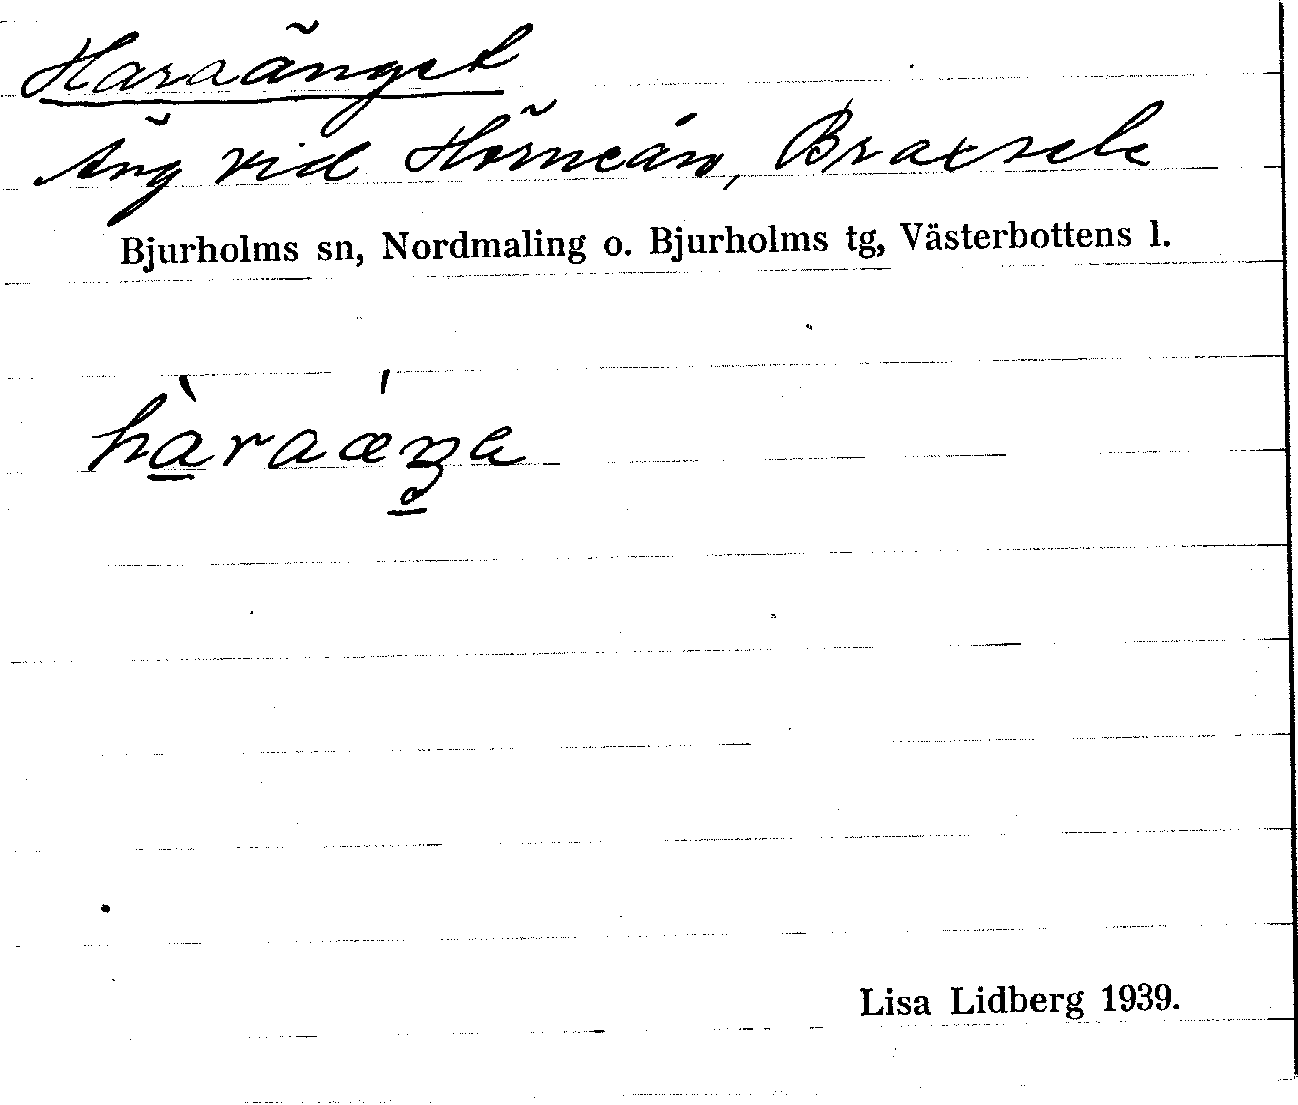 Haraänget
Äng vid Hörneån, Braxsele
Bjurholms sn, Nordmaling o. Bjurholms tg, Västerbottens l.
Lisa Lidberg 1939.